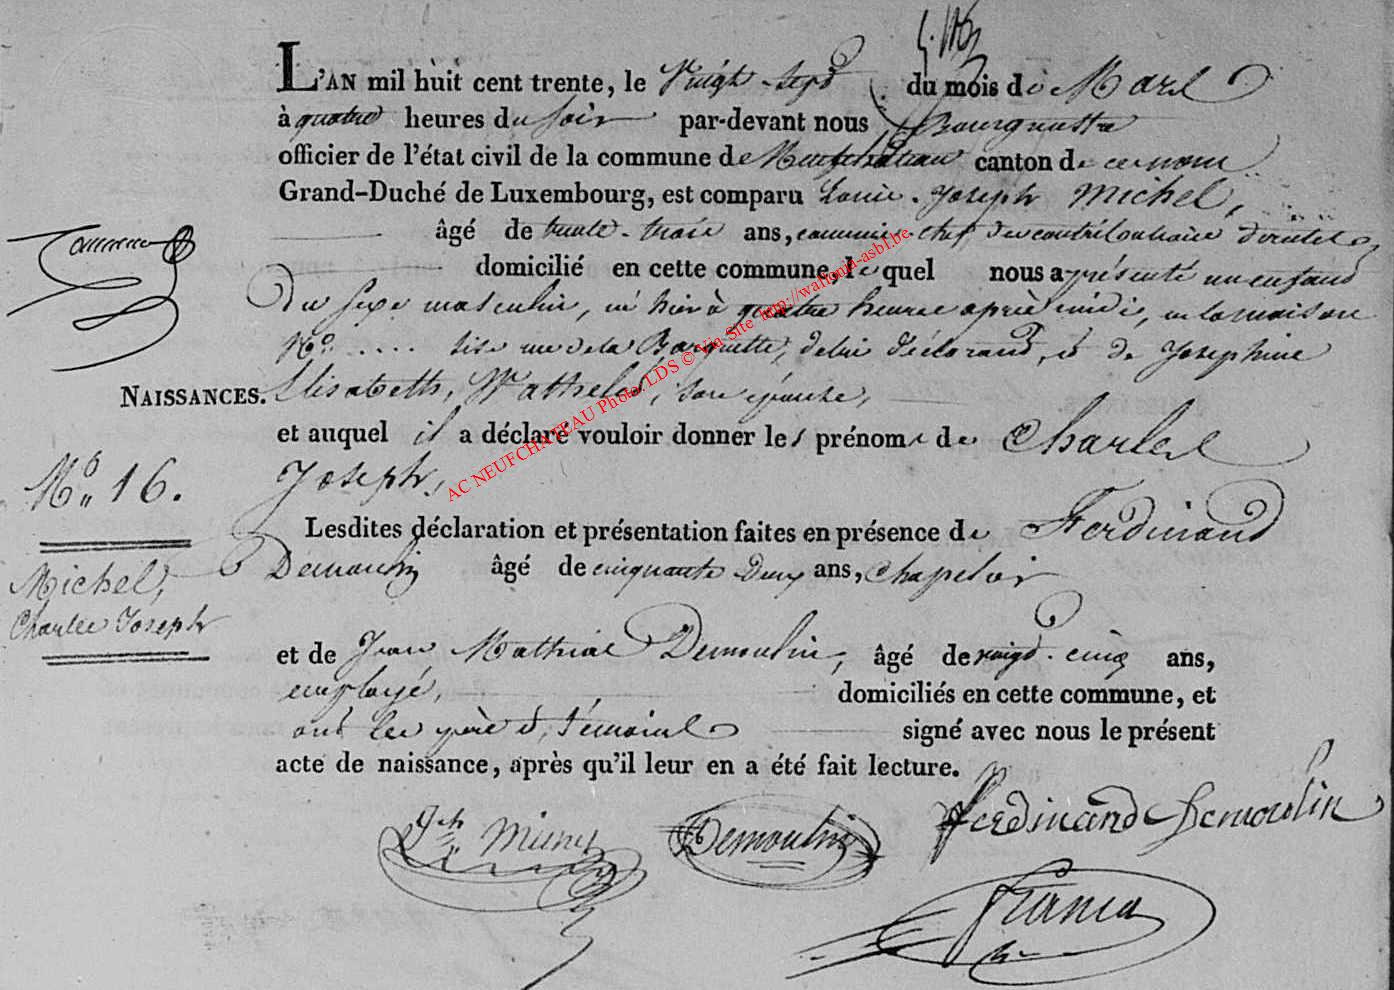 L'AN mil huit cent trente, le Vingt-Sept du mois de Mars
à quatre heures du soir par-devant nous Bourgmestre
officier de l'état civil de la commune de Neufchâteau canton de ce nom
Grand-Duché de Luxembourg, est comparu Louis-Joseph Michel,
âgé de trente-trois ans, commis-chef des contributions directes
domicilié en cette commune, lequel nous a présenté un enfant
du sexe masculin, né hier à quatre heures après midi, en la maison
No. .... sise rue de la Barquette, de lui déclarant, et de Josephine
Elisabeth, Wathelet, son épouse,
NAISSANCES.
et auquel il a déclaré vouloir donner les prénoms de Charles
Joseph,
No. 16.
Michel,
Charles Joseph
Lesdites déclaration et présentation faites en présence de Ferdinand
Demoulin âgé de cinquante Deux ans, Chapelier
et de Jean Mathias Demoulin, âgé de vingt-cinq ans,
employé, domiciliés en cette commune, et
ont les père et témoins signé avec nous le présent
acte de naissance, après qu'il leur en a été fait lecture.
Demoulin Ferdinand Demoulin
AC NEUFCHATEAU Photo LDS © Via Site http://wallonia-asbl.be